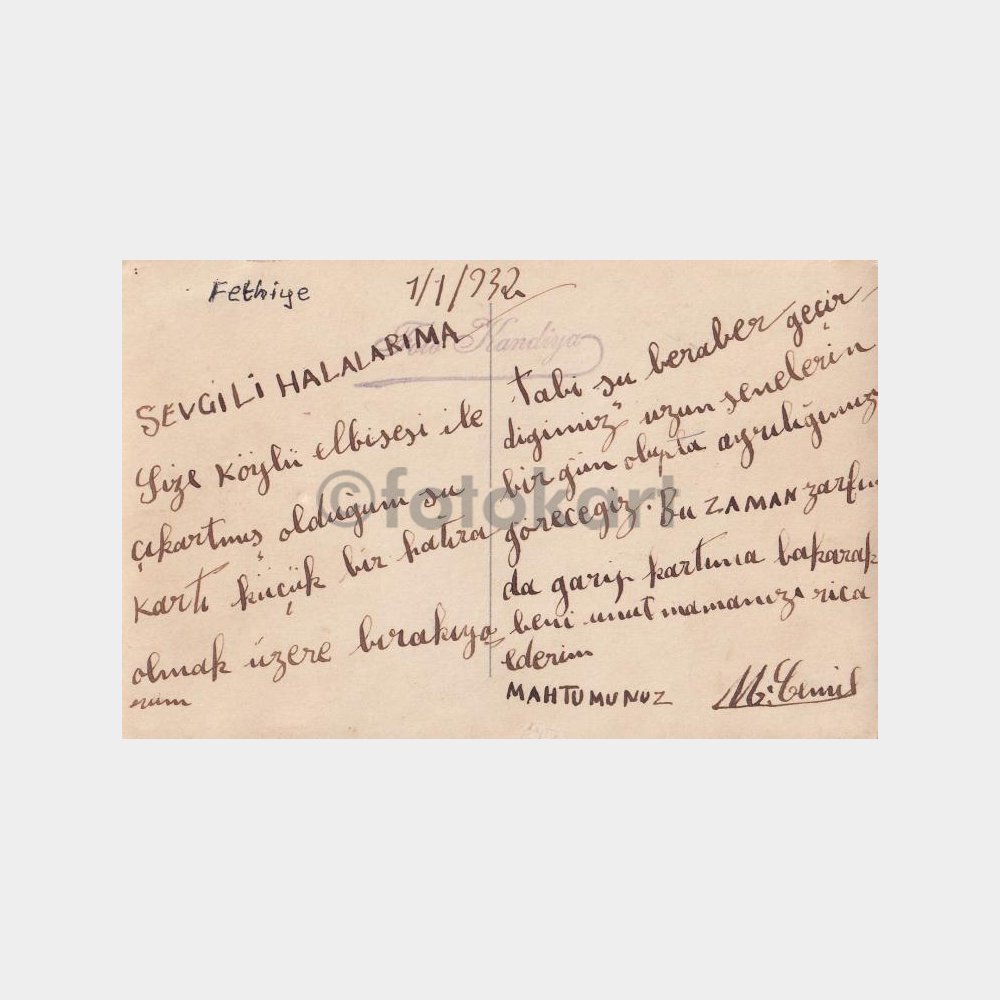 Fethiye
1/1/932
Foto Kandiya
SEVGİLİ HALALARIMA
Size köylü elbisesi ile
çıkartmış olduğum şu
kartı küçük bir hatıra
olmak üzere bırakıyo
rum
Tabi şu beraber geçir
diğimiz uzun senelerin
bir gün olupta ayrılığımızı
göreceğiz. Bu ZAMAN zarfın
da garip kartıma bakarak
beni unutmamanızı rica
ederim
MAHTUMUNUZ M. Cemil
©fotokart